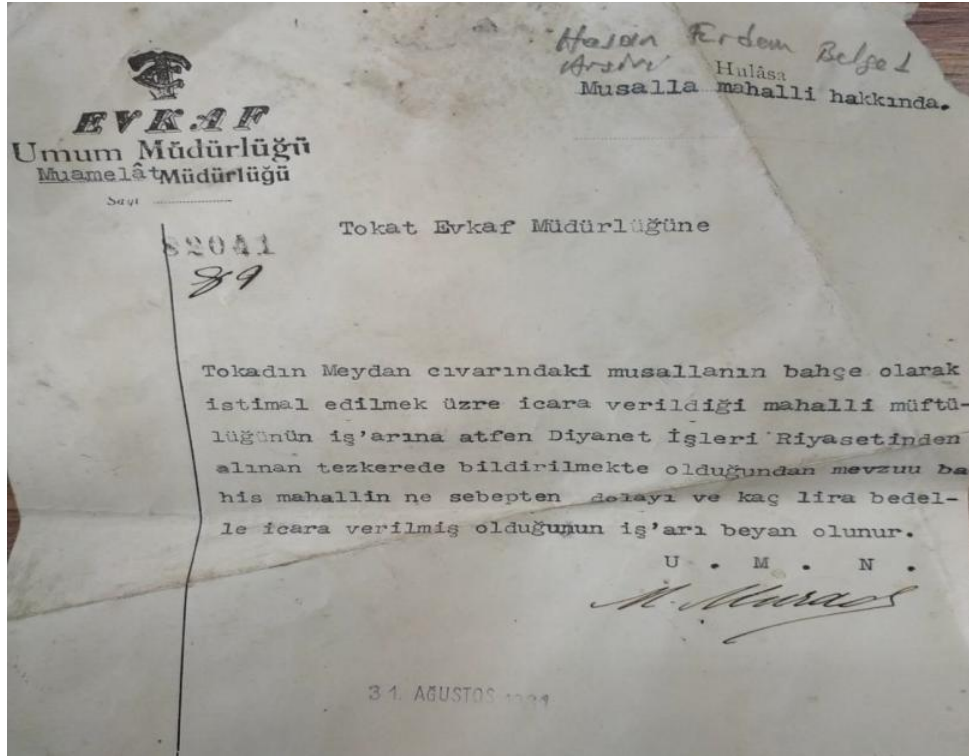 Hasan Ferdem Belge 1
Arşivi
Hulâsa
Musalla mahalli hakkında.
EVKAF
Umum Müdürlüğü
Muamelât Müdürlüğü
Sayı
82041
89
Tokat Evkaf Müdürlüğüne
Tokadın Meydan cıvarındaki musallanın bahçe olarak
istimal edilmek üzre icara verildiği mahalli müftü-
lüğünün iş'arına atfen Diyanet İşleri Riyasetinden
alınan tezkerede bildirilmekte olduğundan mevzuu ba
his mahallin ne sebepten dolayı ve kaç lira bedel-
le icara verilmiş olduğunun iş'arı beyan olunur.
U . M . N .
31. AĞUSTOS